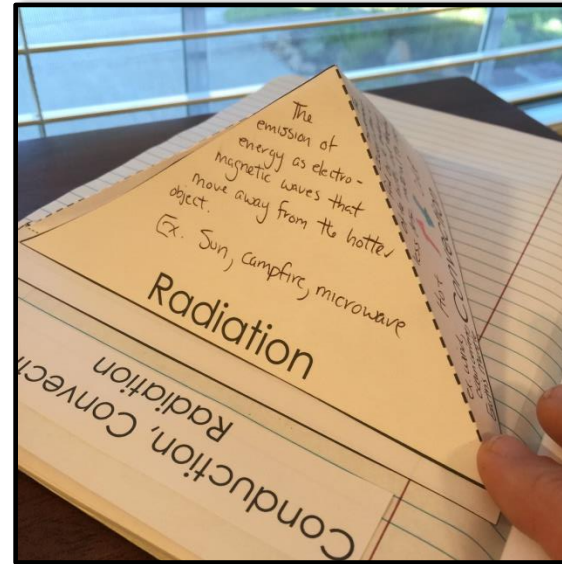 The
emission of
energy as electro-
magnetic waves that
move away from the hotter
object.
Ex. Sun, campfire, microwave
Radiation
Conduction, Convecti
Radiation
Convection